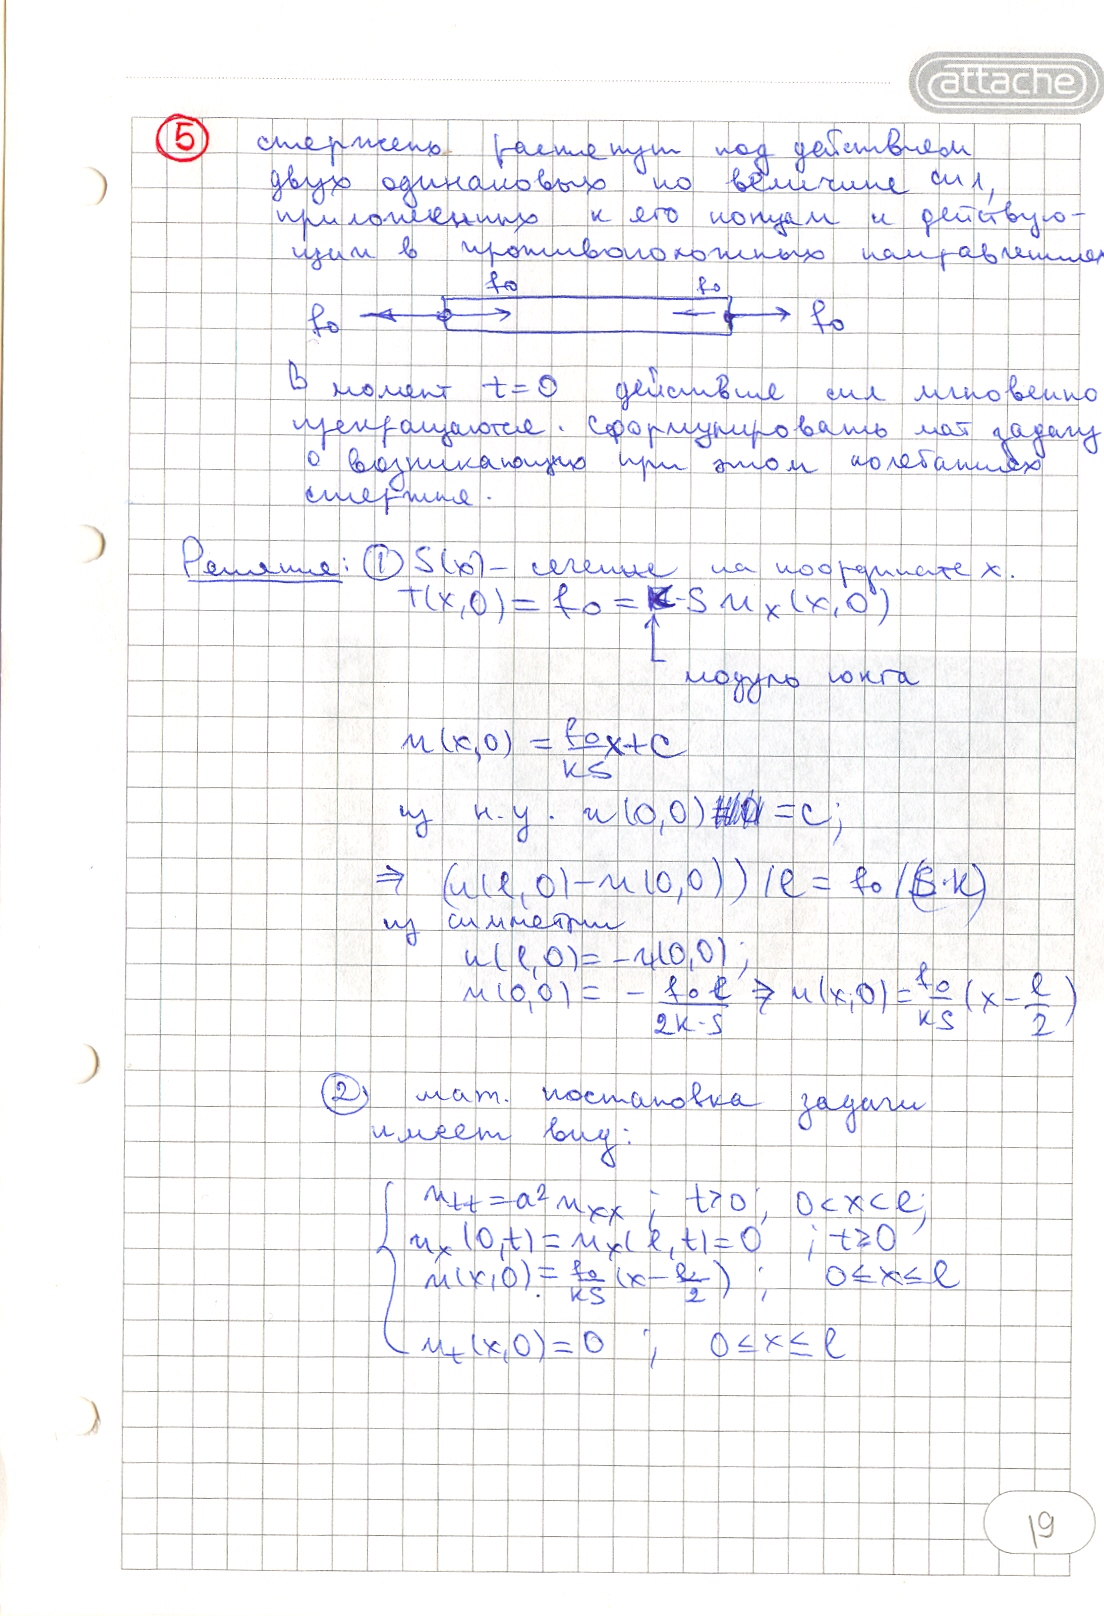 attache
5 стержень растянут под действием
двух одинаковых по величине сил,
приложенных к его концам и действую-
щим в противоположных направлениях
f₀ f₀
f₀ f₀
В момент t=0 действие сил мгновенно
прекращается. Сформулировать мат задачу
о возникающих при этом колебаниях
стержня.
Решение: ① S(x) – сечение на координате x.
T(x,0) = f₀ = k·S u_x(x,0)
модуль юнга
u(x,0) = f₀/kS x+c
из н.у. u(0,0) = c;
⇒ (u(l,0)-u(0,0))/l = f₀/(S·k)
из симметрии
u(l,0)=-u(0,0);
u(0,0) = - f₀l/2k·S ⇒ u(x,0)=f₀/kS (x-l/2)
② мат. постановка задачи
имеет вид:
u_tt=a²u_xx ; t>0; 0<x<l;
u_x(0,t)=u_x(l,t)=0 ; t≥0
u(x,0)=f₀/kS (x-l/2) ; 0≤x≤l
u_t(x,0)=0 ; 0≤x≤l
19